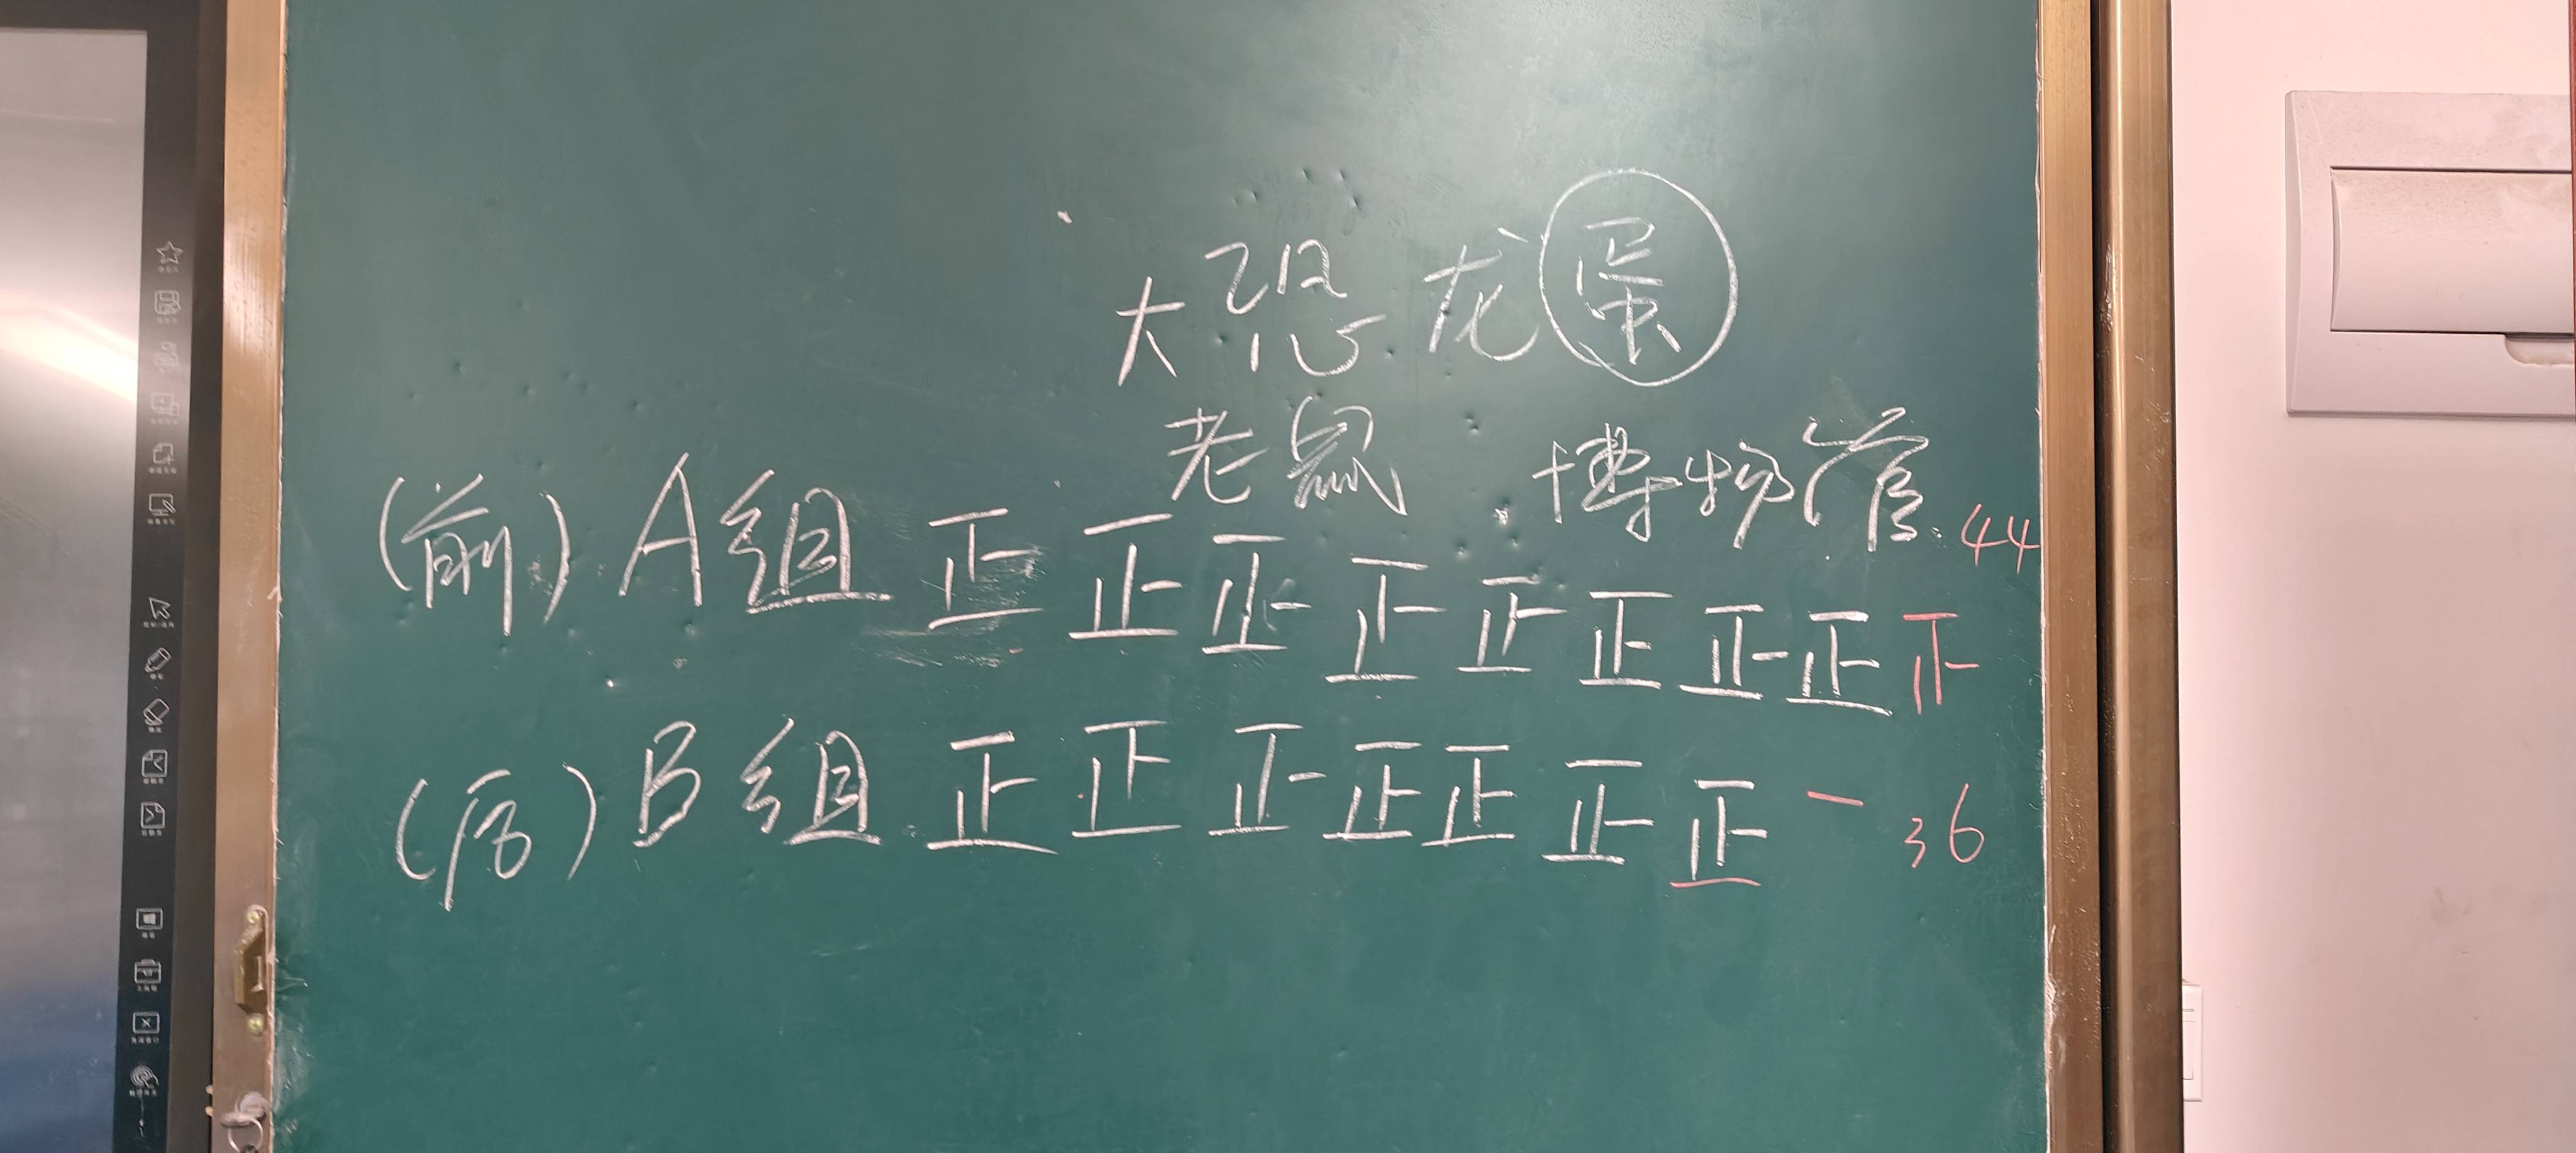 大恐龙蛋
老鼠 博物管
44
(前) A组 正 正 正 正 正 正 正 正 正
(后) B组 正 正 正 正 正 正 正 一 36